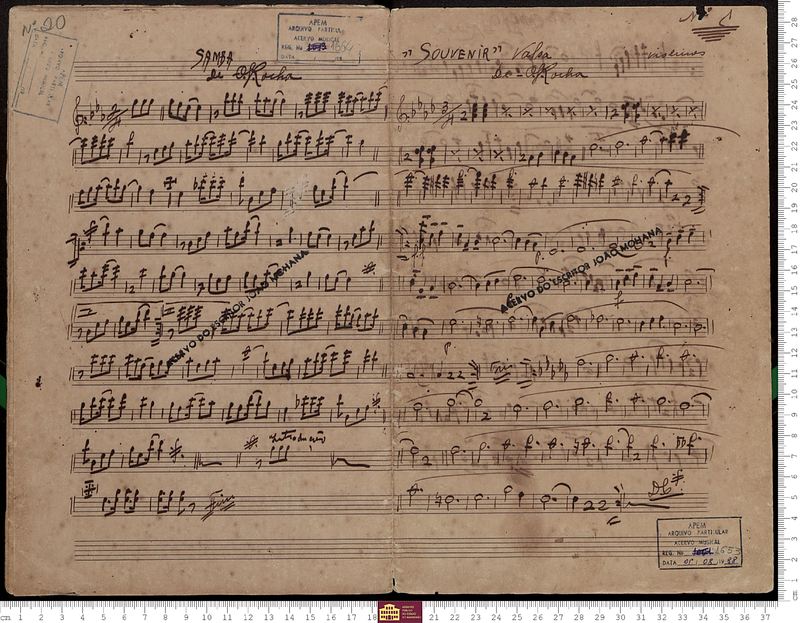 Nº 20
APEM
ARQUIVO PARTICULAR
ACERVO MUSICAL
REG. No 1654
DATA
SAMBA
de ORocha
ACERVO DO ESCRITOR JOÃO MOHANA
Introdução
Fim
"SOUVENIR" Valsa
De ORocha
violinos
ACERVO DO ESCRITOR JOÃO MOHANA
Fim
DC
APEM
ARQUIVO PARTICULAR
ACERVO MUSICAL
REG. No 1653
DATA
cm 1 2 3 4 5 6 7 8 9 10 11 12 13 14 15 16 17 18 21 22 23 24 25 26 27 28 29 30 31 32 33 34 35 36 37